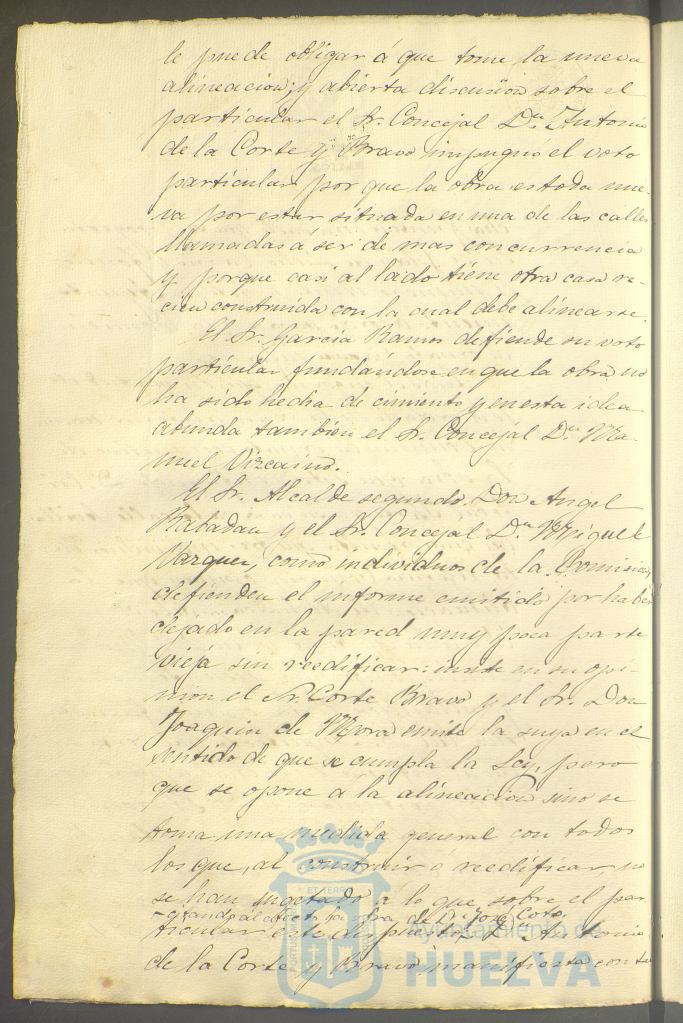 le puede obligar á que tome la nueva
alineacion; y abierta discusion sobre el
particular el Sr. Concejal Dn. Antonio
de la Corte y Bravo impugnó el voto
particular por que la obra es toda nue-
va por estar situada en una de las calles
llamadas á ser de mas concurrencia
y porque casi al lado tiene otra casa re-
cien construida con la cual debe alinearse.
El Sr. Garcia Ramos defiende su voto
particular fundándose en que la obra no
ha sido hecha de cimiento y en esta idea
abunda tambien el Sr. Concejal Dn. Ma
nuel Vizcaino.
El Sr. Alcalde segundo Don Angel
Rabadan y el Sr. Concejal Dn. Miguel
Vazquez, como individuos de la Comision,
defienden el informe emitido por haber
dejado en la pared muy poca parte
vieja sin reedificar: insite en su opi
nion el Sr. Corte Bravo y el Sr. Don
Joaquin de Mora emite la suya en el
sentido de que se cumpla la Ley, pero
que se opone a la alineacion sino se
toma una medida general con todos
los que, al construir o reedificar, no
se han sugetado á lo que sobre el par
obra de D. José Corto
ticular este dispuesto, Dn. Antonio
de la Corte y Bravo manifiesta
Ayuntamiento de
HUELVA